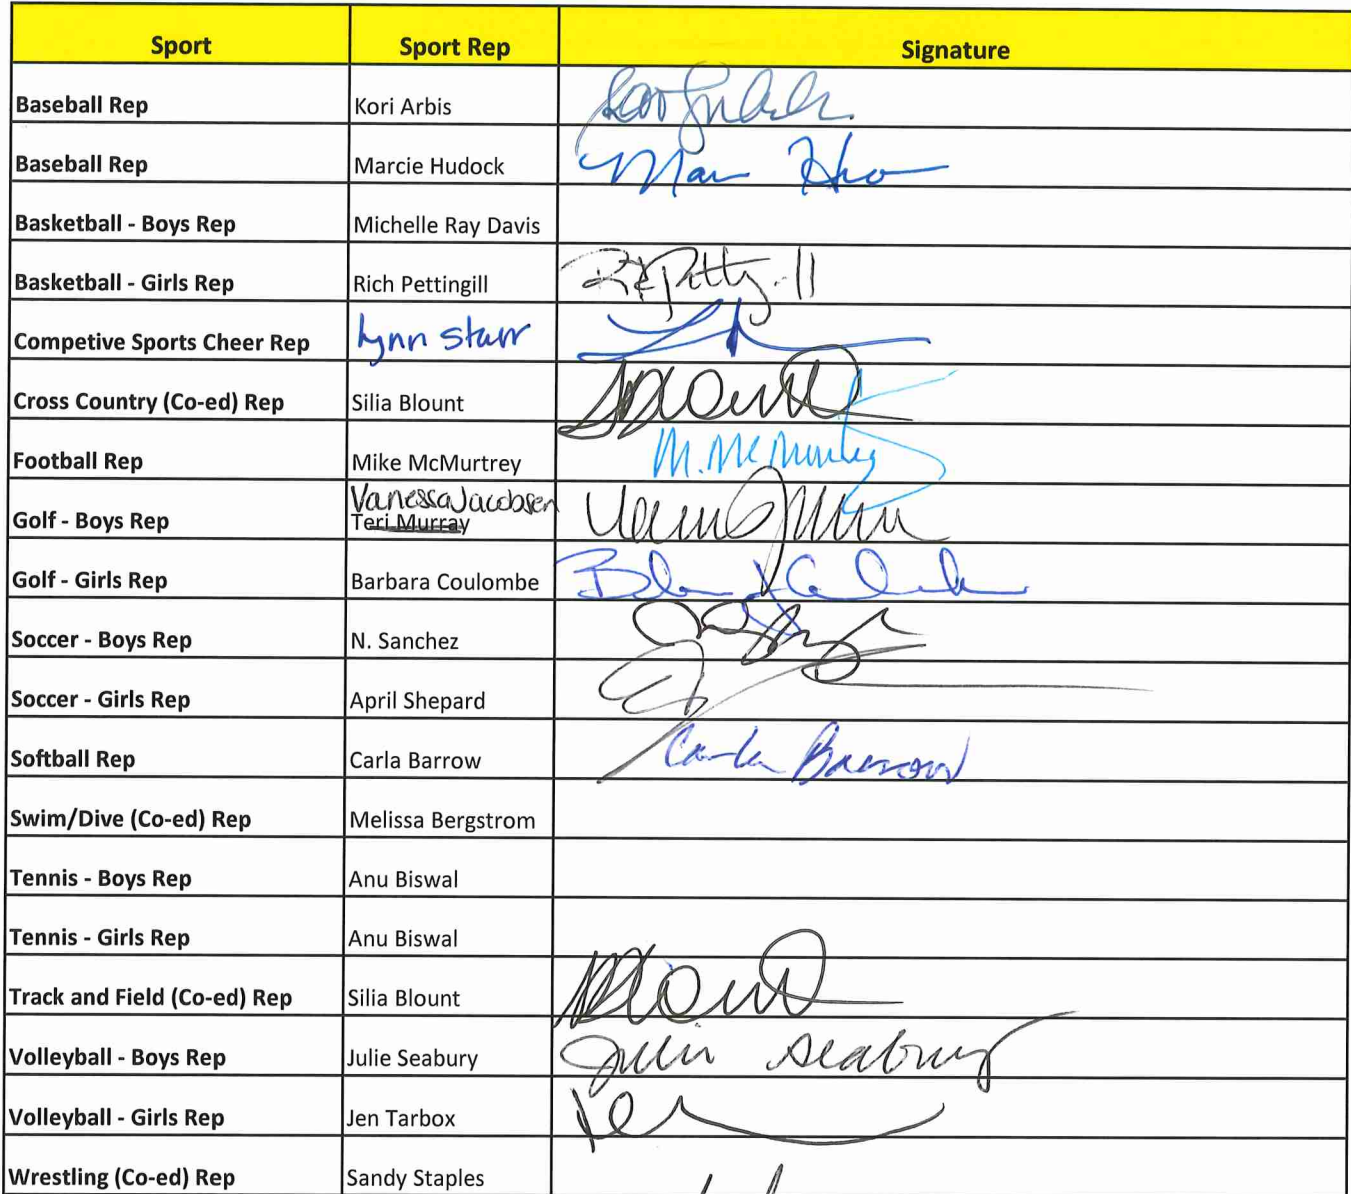 Sport Sport Rep Signature
Baseball Rep Kori Arbis
Baseball Rep Marcie Hudock
Basketball - Boys Rep Michelle Ray Davis
Basketball - Girls Rep Rich Pettingill
Competive Sports Cheer Rep Lynn Starr
Cross Country (Co-ed) Rep Silia Blount Blount
Football Rep Mike McMurtrey M. McMurtrey
Vanessa Jacobsen
Golf - Boys Rep Teri Murray
Golf - Girls Rep Barbara Coulombe
Soccer - Boys Rep N. Sanchez
Soccer - Girls Rep April Shepard
Softball Rep Carla Barrow Carla Barrow
Swim/Dive (Co-ed) Rep Melissa Bergstrom
Tennis - Boys Rep Anu Biswal
Tennis - Girls Rep Anu Biswal
Track and Field (Co-ed) Rep Silia Blount Blount
Volleyball - Boys Rep Julie Seabury Julie Seabury
Volleyball - Girls Rep Jen Tarbox
Wrestling (Co-ed) Rep Sandy Staples